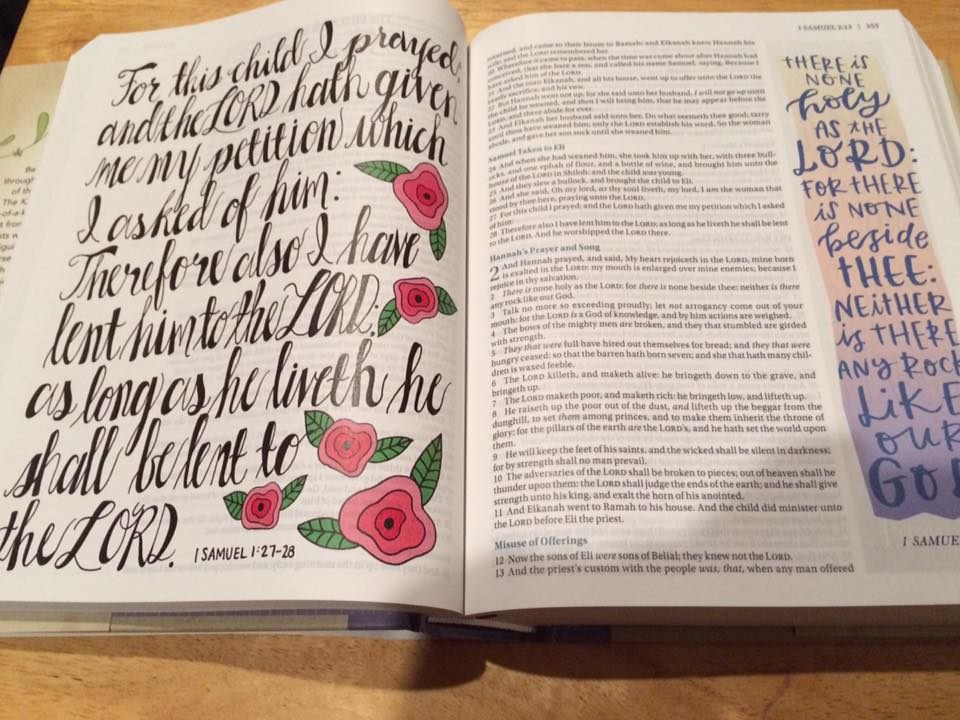 For this child I prayed;
and the LORD hath given
me my petition which
I asked of him:
Therefore also I have
lent him to the LORD;
as long as he liveth he
shall be lent to
the LORD.
1 SAMUEL 1:27-28
1 SAMUEL 2:13 | 353
returned, and came to their house to Ramah: and Elkanah knew Hannah his
wife; and the LORD remembered her.
20 Wherefore it came to pass, when the time was come about after Hannah had
conceived, that she bare a son, and called his name Samuel, saying, Because I
have asked him of the LORD.
21 And the man Elkanah, and all his house, went up to offer unto the LORD the
yearly sacrifice, and his vow.
22 But Hannah went not up; for she said unto her husband, I will not go up until
the child be weaned, and then I will bring him, that he may appear before the
LORD, and there abide for ever.
23 And Elkanah her husband said unto her, Do what seemeth thee good; tarry
until thou have weaned him; only the LORD establish his word. So the woman
abode, and gave her son suck until she weaned him.
Samuel Taken to Eli
24 And when she had weaned him, she took him up with her, with three bul-
locks, and one ephah of flour, and a bottle of wine, and brought him unto the
house of the LORD in Shiloh: and the child was young.
25 And they slew a bullock, and brought the child to Eli.
26 And she said, Oh my lord, as thy soul liveth, my lord, I am the woman that
stood by thee here, praying unto the LORD.
27 For this child I prayed; and the LORD hath given me my petition which I asked
of him:
28 Therefore also I have lent him to the LORD; as long as he liveth he shall be lent
to the LORD. And he worshipped the LORD there.
Hannah's Prayer and Song
2 And Hannah prayed, and said, My heart rejoiceth in the LORD, mine horn
is exalted in the LORD: my mouth is enlarged over mine enemies; because I
rejoice in thy salvation.
2 There is none holy as the LORD: for there is none beside thee: neither is there
any rock like our God.
3 Talk no more so exceeding proudly; let not arrogancy come out of your
mouth: for the LORD is a God of knowledge, and by him actions are weighed.
4 The bows of the mighty men are broken, and they that stumbled are girded
with strength.
5 They that were full have hired out themselves for bread; and they that were
hungry ceased: so that the barren hath born seven; and she that hath many chil-
dren is waxed feeble.
6 The LORD killeth, and maketh alive: he bringeth down to the grave, and
bringeth up.
7 The LORD maketh poor, and maketh rich: he bringeth low, and lifteth up.
8 He raiseth up the poor out of the dust, and lifteth up the beggar from the
dunghill, to set them among princes, and to make them inherit the throne of
glory: for the pillars of the earth are the LORD's, and he hath set the world upon
them.
9 He will keep the feet of his saints, and the wicked shall be silent in darkness;
for by strength shall no man prevail.
10 The adversaries of the LORD shall be broken to pieces; out of heaven shall he
thunder upon them: the LORD shall judge the ends of the earth; and he shall give
strength unto his king, and exalt the horn of his anointed.
11 And Elkanah went to Ramah to his house. And the child did minister unto
the LORD before Eli the priest.
Misuse of Offerings
12 Now the sons of Eli were sons of Belial; they knew not the LORD.
13 And the priest's custom with the people was, that, when any man offered
THERE IS
NONE
holy
AS THE
LORD:
FOR THERE
is NONE
beside
THEE:
NEITHER
is THERE
ANY ROCK
LIKE
OUR
GOD
1 SAMUE